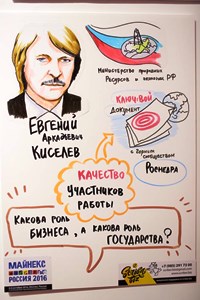 Министерство природных
Ресурсов и экологии РФ
Евгений
Аркадьевич
Киселев
Ключевой
документ
с Горным сообществом
Роснедра
Качество
участников
работы
Какова роль
бизнеса, а какова роль
государства?
МАЙНЕКС
РОССИЯ 2016